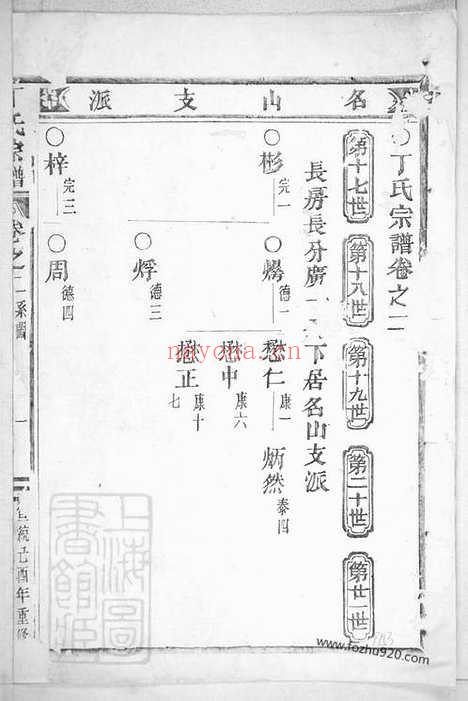 名山支派
丁氏宗譜卷之二
第十七世
第十八世
第十九世
第二十世
第廿一世
長房長分廣
下居名山支派
彬 完一
燆 德一
懋仁 康一
炳然 泰四
懋中 康六
懋正 康十七
烰 德三
梓 完三
周 德四
氏宗譜
卷之二系圖
一
統己酉年重修
上海圖書館藏
nayona.cn
www.fozhu920.com